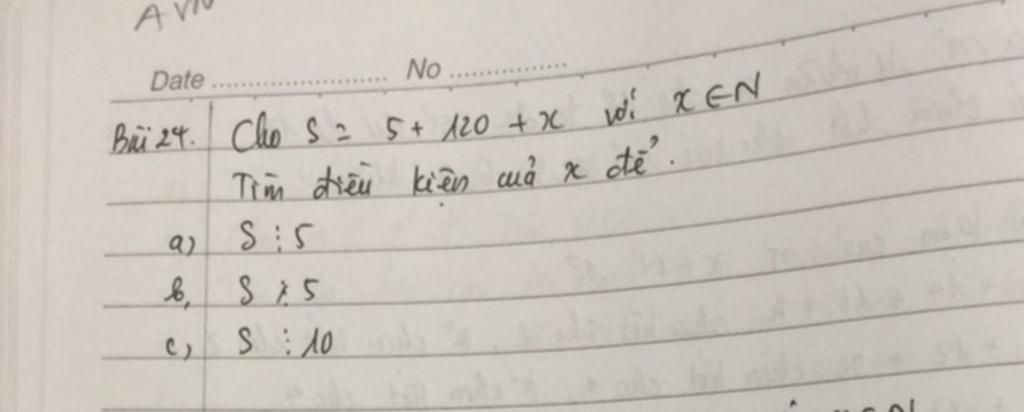 AVN
Date ........................ No ................
Bài 24. Cho S = 5 + 120 + x với x ∈ N
Tìm điều kiện của x để.
a) S ⋮ 5
b, S ⋮̸ 5
c) S ⋮ 10